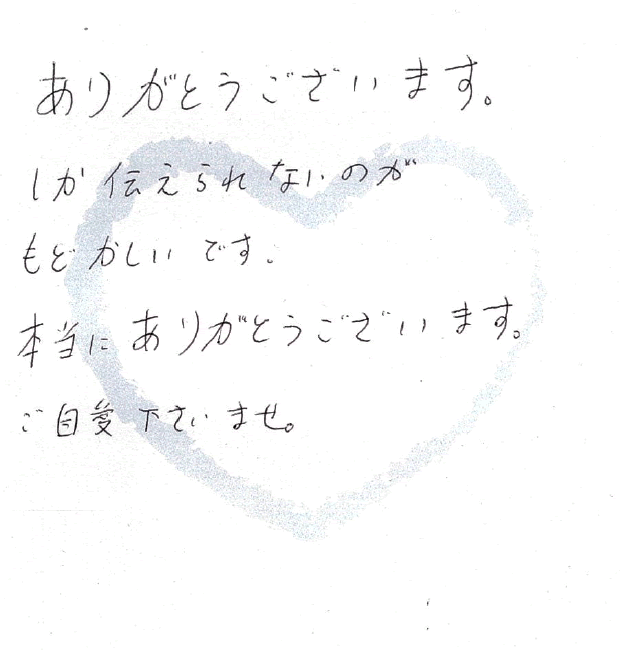 ありがとうございます。
しか伝えられないのが
もどかしいです。
本当にありがとうございます。
ご自愛下さいませ。